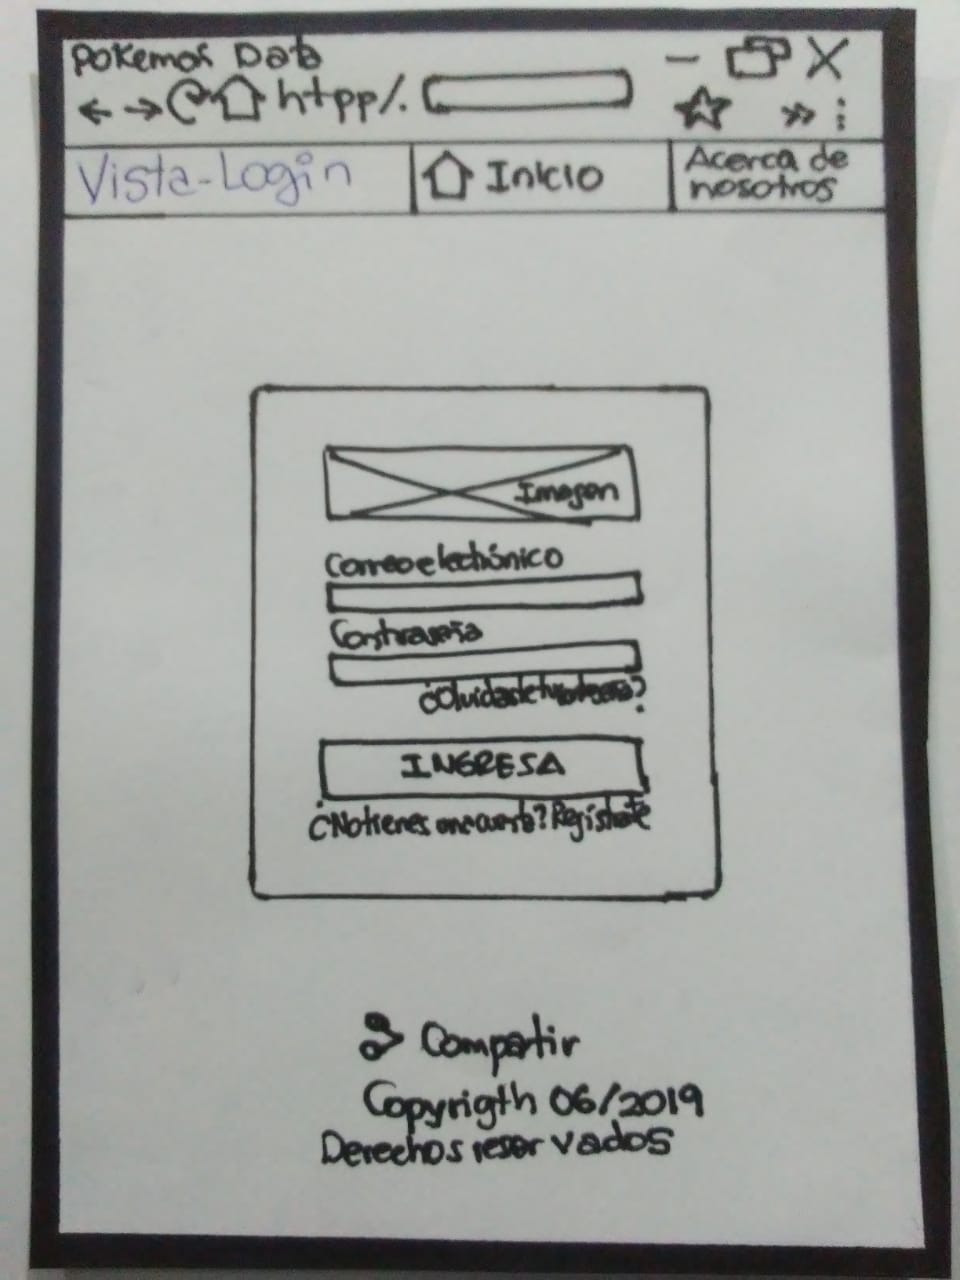 Pokemos Data
htpp/.
Vista-Login
Inicio
Acerca de
nosotros
Imagen
Correo electrónico
Contraseña
INGRESA
¿No tienes una cuenta? Regístrate
Compartir
Copyrigth 06/2019
Derechos reservados